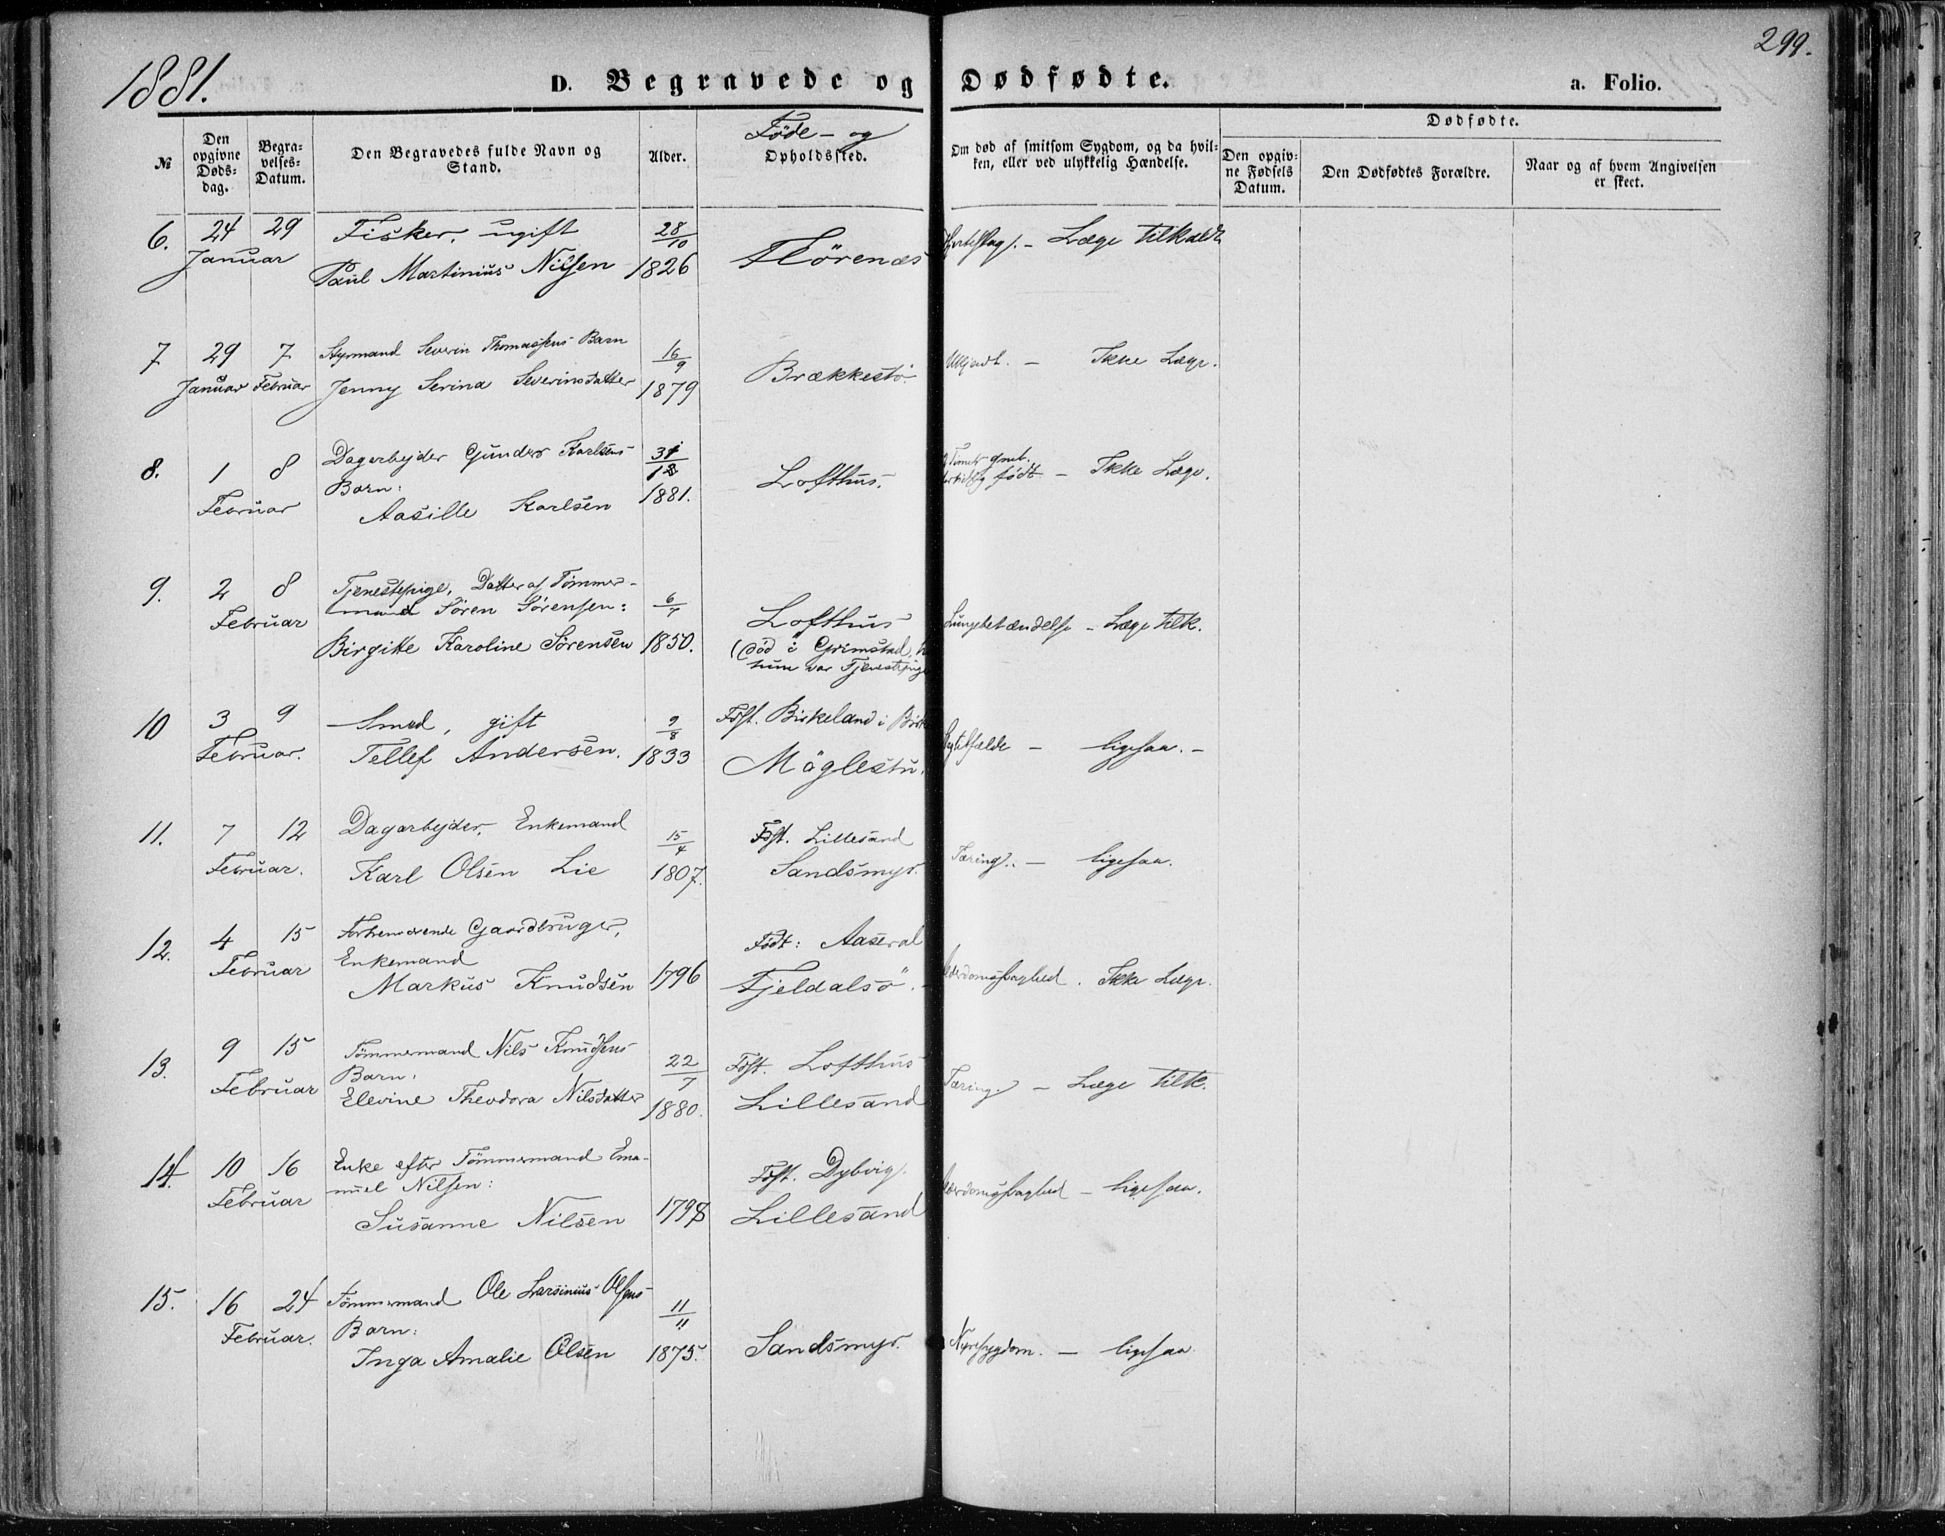 1881.
299.
D. Begravede og Dødfødte.
a. Folio.
№
Den opgivne Dødsdag.
Begravelses-Datum.
Den Begravedes fulde Navn og Stand.
Alder.
Føde- og
Opholdssted.
Om død af smitsom Sygdom, og da hvilken, eller ved ulykkelig Hændelse.
Dødfødte.
Den opgivne Fødsels Datum.
Den Dødfødtes Forældre.
Naar og af hvem Angivelsen er skeet.
6. 24 29 Fisker, ugift 28/10
Januar Paul Martinius Nilsen 1826 Flörenæs Læge tilkaldt
7 29 7 Styrmand Severin Thomassens Barn 16/9
Januar Februar Jenny Serina Severinsdatter 1879 Brækkestö Ukjendt. – Ikke Læge.
8. 1 8 Dagarbejder Gunders Karlsens
Barn: Lofthus. født – Ikke Læge.
Februar Aasille Karlsen 1881.
9. 2 8 Tjenestepige, Datter af Tømmer-
Februar mand Sören Sörensen: 6/7 Lofthus Lungebetændelse – Læge tilk.
Birgitte Karoline Sörensen 1850. (død i Grimstad,
hun var Tjenestepige
10 3 9 Smed, gift 9/8 Føst. Birkeland i
Februar. Tellef Andersen. 1833 Möglestu. – ligesaa. –
11. 7 12 Dagarbejder, Enkemand 15/4 Føst. Lillesand
Februar. Karl Olsen Lie 1807. Sandsmyr. Tæring. – ligesaa.
12. 4 15 Forhenværende Gaardbruger, Født: Aaseral
Februar Enkemand
Markus Knudsen 1796 Fjeldalsö. – Ikke Læge.
13. 9 15 Tömmermand Nils Knudsens 22/7 Føst. Lofthus
Februar Barn: Tæring. – Læge tilk.
Elevine Theodora Nilsdatter 1880. Lillesand
14. 10 16 Enke efter Tömmermand Ema- Føst. Dybvig.
Februar nuel Nilsen: – ligesaa.
Susanne Nilsen 1798 Lillesand
15. 16 24 Tömmermand Ole Larsinius Olsens 11/11
Februar. Barn: Sandsmyr. Nyresygdom. – ligesaa.
Inga Amalie Olsen 1875.